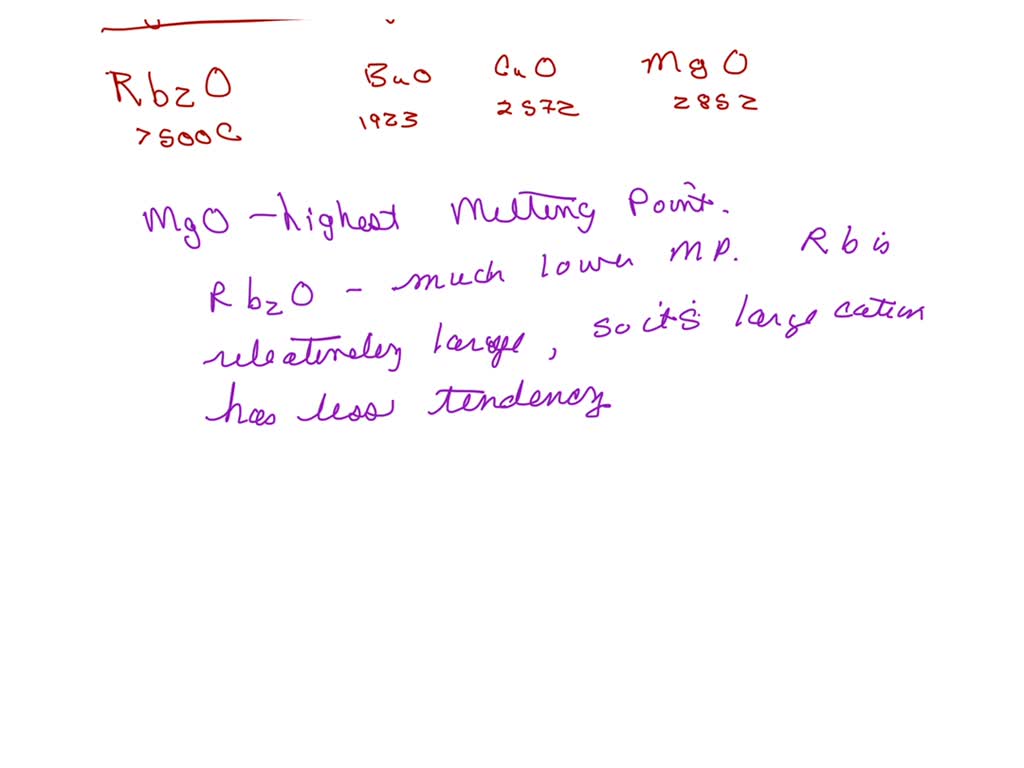 Rb₂O BaO CaO MgO
>500C 1923 2572 2852
MgO – highest melting point.
Rb₂O – much lower MP. Rb is
relatively large, so it's large cation
has less tendency